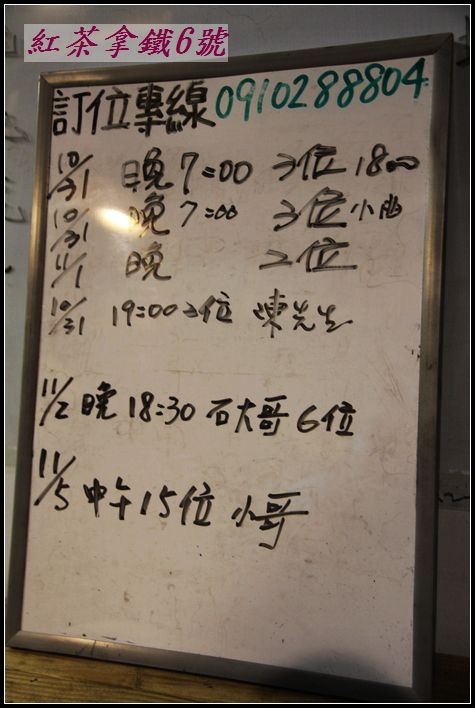 紅茶拿鐵6號
訂位專線 0910288804
10/31 晚 7:00 3位 1800
10/31 晚 7:00 3位 小
11/1 晚 2位
10/31 19:00 2位 陳先生
11/2 晚 18:30 石大哥 6位
11/5 中午 15位 小哥